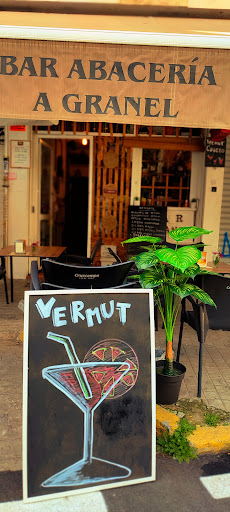 BAR ABACERÍA
A GRANEL
VERMUT
R
VERMUT